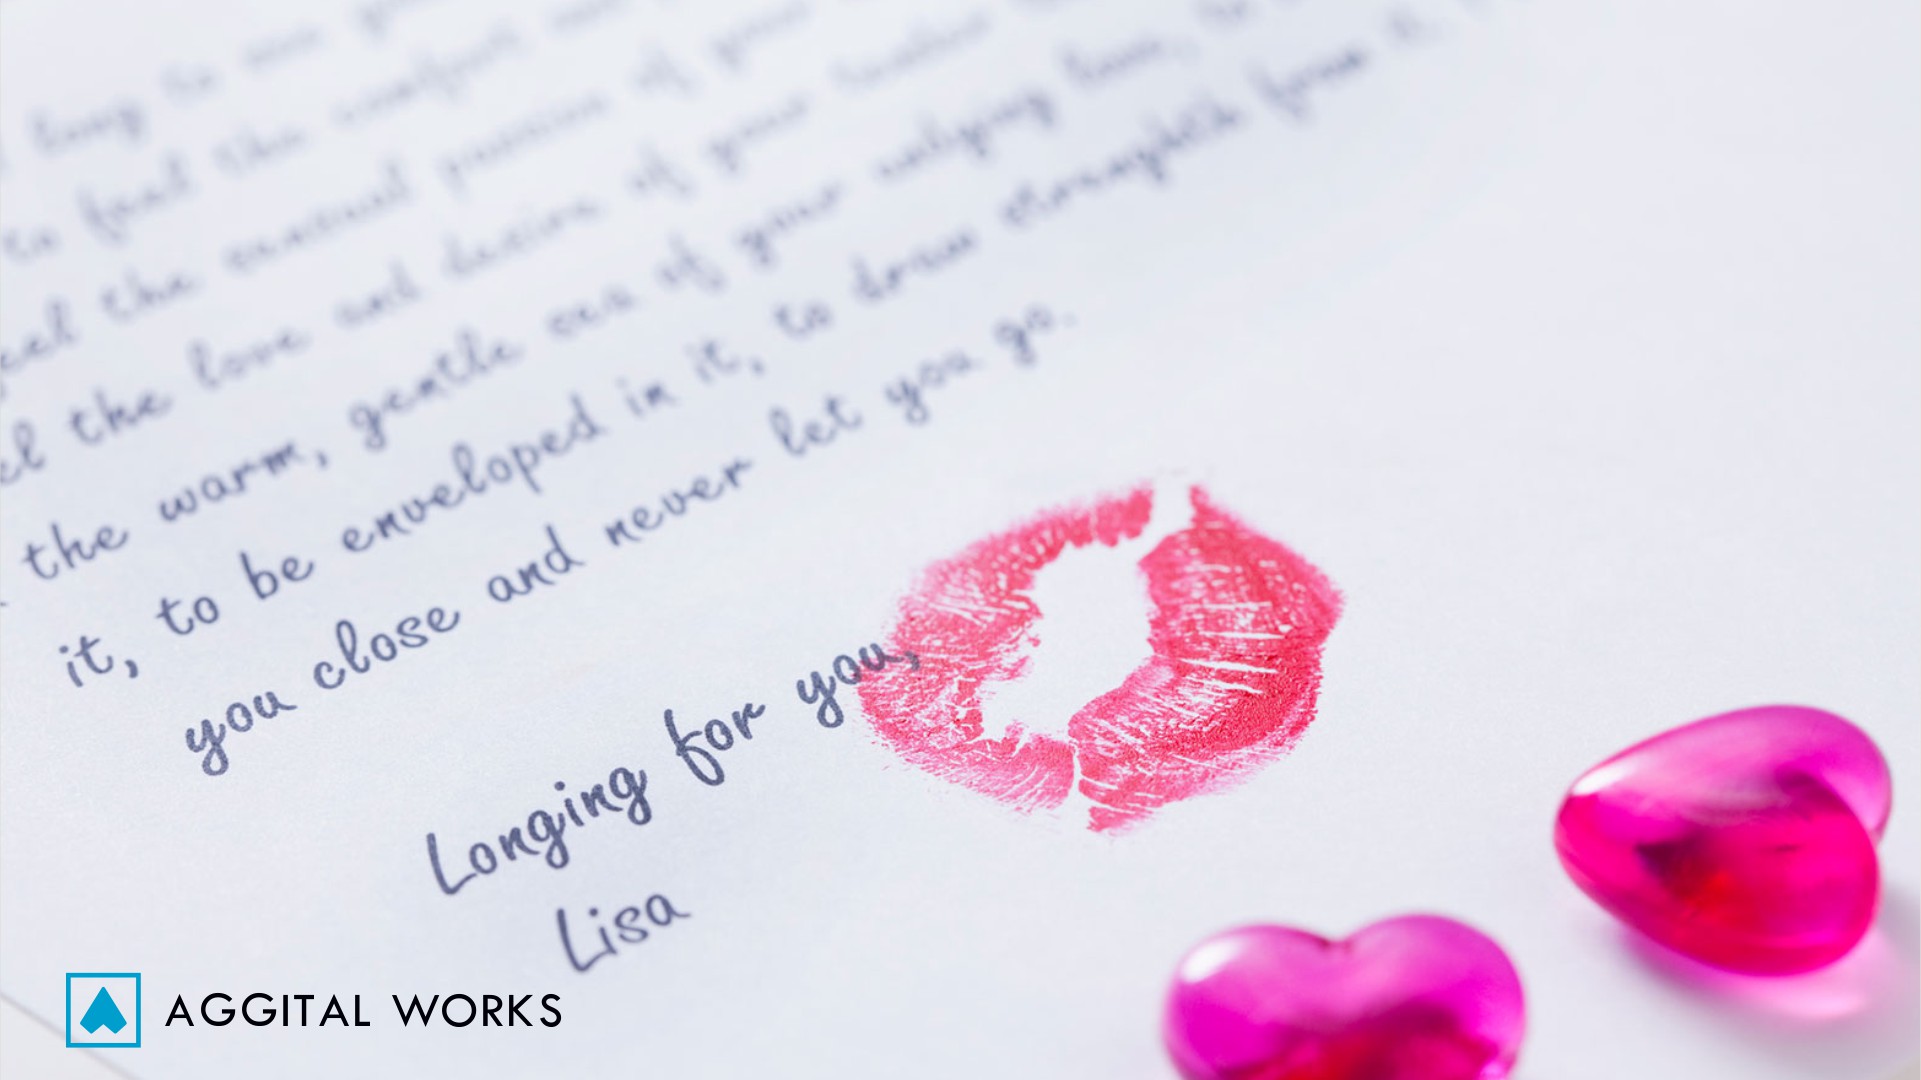 long to
to feel the comfort
feel the sensual passion of your
the love and desire of your tender
the warm, gentle sea of your undying love, to
it, to be enveloped in it, to draw strength from it.
you close and never let you go.
Longing for you,
Lisa
AGGITAL WORKS